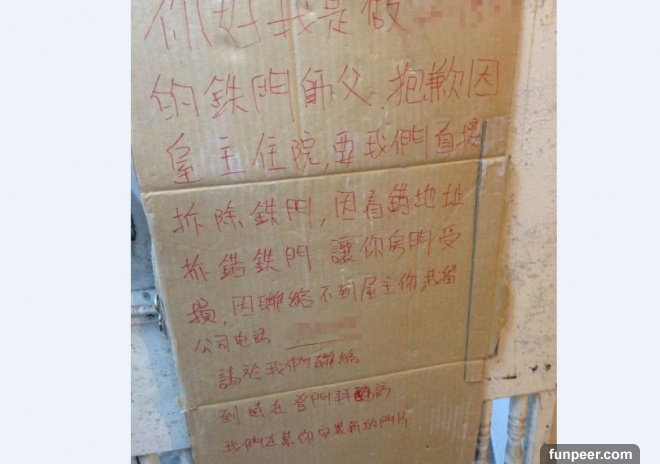 你好我是做
的鉄門師父.抱歉因
屋主住院,要我們直接
拆除鉄門,因看錯地址
拆錯鉄門 讓你房門受
損,因聯絡不到屋主你,我留
公司电話
請於我們聯絡
到時在登門
我們在幫你安裝新的門片
funpeer.com